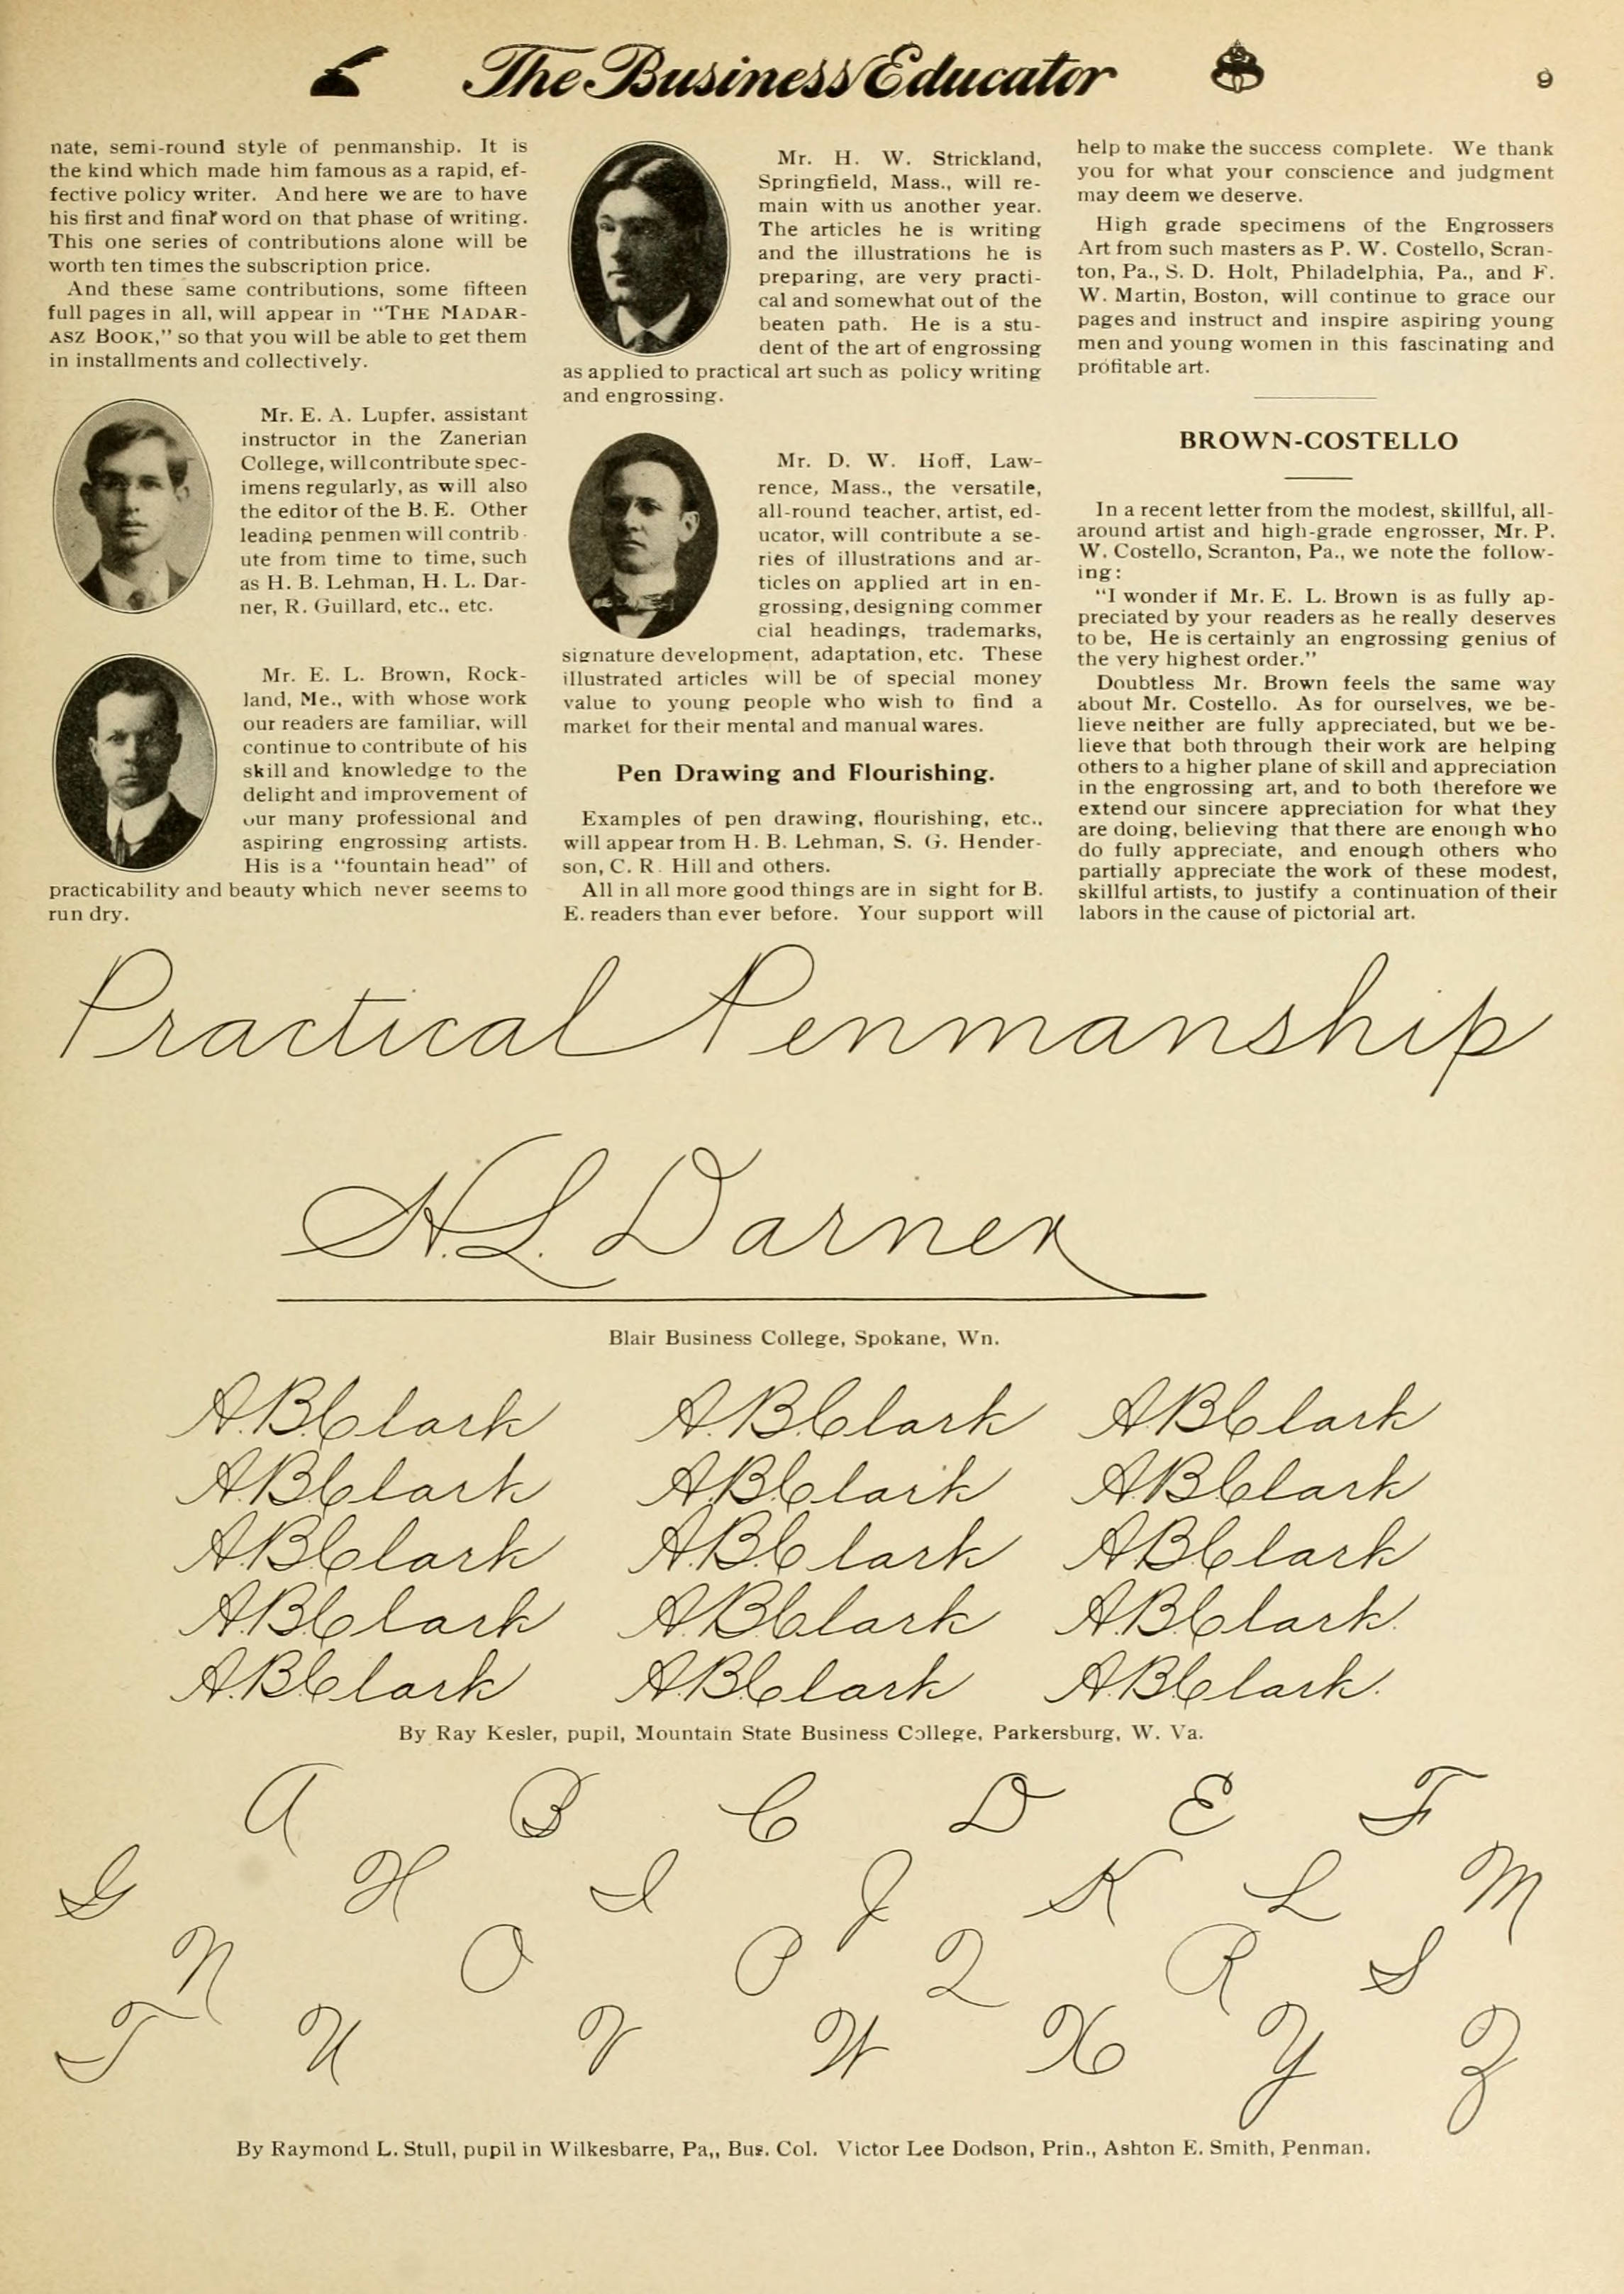 The Business Educator
9
nate, semi-round style of penmanship. It is
the kind which made him famous as a rapid, ef-
fective policy writer. And here we are to have
his first and final word on that phase of writing.
This one series of contributions alone will be
worth ten times the subscription price.
And these same contributions, some fifteen
full pages in all, will appear in "THE MADAR-
ASZ BOOK," so that you will be able to get them
in installments and collectively.
Mr. E. A. Lupfer, assistant
instructor in the Zanerian
College, will contribute spec-
imens regularly, as will also
the editor of the B. E. Other
leading penmen will contrib-
ute from time to time, such
as H. B. Lehman, H. L. Dar-
ner, R. Guillard, etc., etc.
Mr. E. L. Brown, Rock-
land, Me., with whose work
our readers are familiar, will
continue to contribute of his
skill and knowledge to the
delight and improvement of
our many professional and
aspiring engrossing artists.
His is a "fountain head" of
practicability and beauty which never seems to
run dry.
Mr. H. W. Strickland,
Springfield, Mass., will re-
main with us another year.
The articles he is writing
and the illustrations he is
preparing, are very practi-
cal and somewhat out of the
beaten path. He is a stu-
dent of the art of engrossing
as applied to practical art such as policy writing
and engrossing.
Mr. D. W. Hoff, Law-
rence, Mass., the versatile,
all-round teacher, artist, ed-
ucator, will contribute a se-
ries of illustrations and ar-
ticles on applied art in en-
grossing, designing commer
cial headings, trademarks,
signature development, adaptation, etc. These
illustrated articles will be of special money
value to young people who wish to find a
market for their mental and manual wares.
Pen Drawing and Flourishing.
Examples of pen drawing, flourishing, etc.,
will appear from H. B. Lehman, S. G. Hender-
son, C. R. Hill and others.
All in all more good things are in sight for B.
E. readers than ever before. Your support will
help to make the success complete. We thank
you for what your conscience and judgment
may deem we deserve.
High grade specimens of the Engrossers
Art from such masters as P. W. Costello, Scran-
ton, Pa., S. D. Holt, Philadelphia, Pa., and F.
W. Martin, Boston, will continue to grace our
pages and instruct and inspire aspiring young
men and young women in this fascinating and
profitable art.
BROWN-COSTELLO
In a recent letter from the modest, skillful, all-
around artist and high-grade engrosser, Mr. P.
W. Costello, Scranton, Pa., we note the follow-
ing:
"I wonder if Mr. E. L. Brown is as fully ap-
preciated by your readers as he really deserves
to be, He is certainly an engrossing genius of
the very highest order."
Doubtless Mr. Brown feels the same way
about Mr. Costello. As for ourselves, we be-
lieve neither are fully appreciated, but we be-
lieve that both through their work are helping
others to a higher plane of skill and appreciation
in the engrossing art, and to both therefore we
extend our sincere appreciation for what they
are doing, believing that there are enough who
do fully appreciate, and enough others who
partially appreciate the work of these modest,
skillful artists, to justify a continuation of their
labors in the cause of pictorial art.
Practical Penmanship
H. L. Darner
Blair Business College, Spokane, Wn.
A.B.Clark A.B.Clark A.B.Clark
A.B.Clark A.B.Clark A.B.Clark
A.B.Clark A.B.Clark A.B.Clark
A.B.Clark A.B.Clark A.B.Clark.
A.B.Clark A.B.Clark A.B.Clark.
By Ray Kesler, pupil, Mountain State Business College, Parkersburg, W. Va.
A B C D E F
G H I J K L M
N O P Q R S
T U V W X Y Z
By Raymond L. Stull, pupil in Wilkesbarre, Pa,, Bus. Col. Victor Lee Dodson, Prin., Ashton E. Smith, Penman.